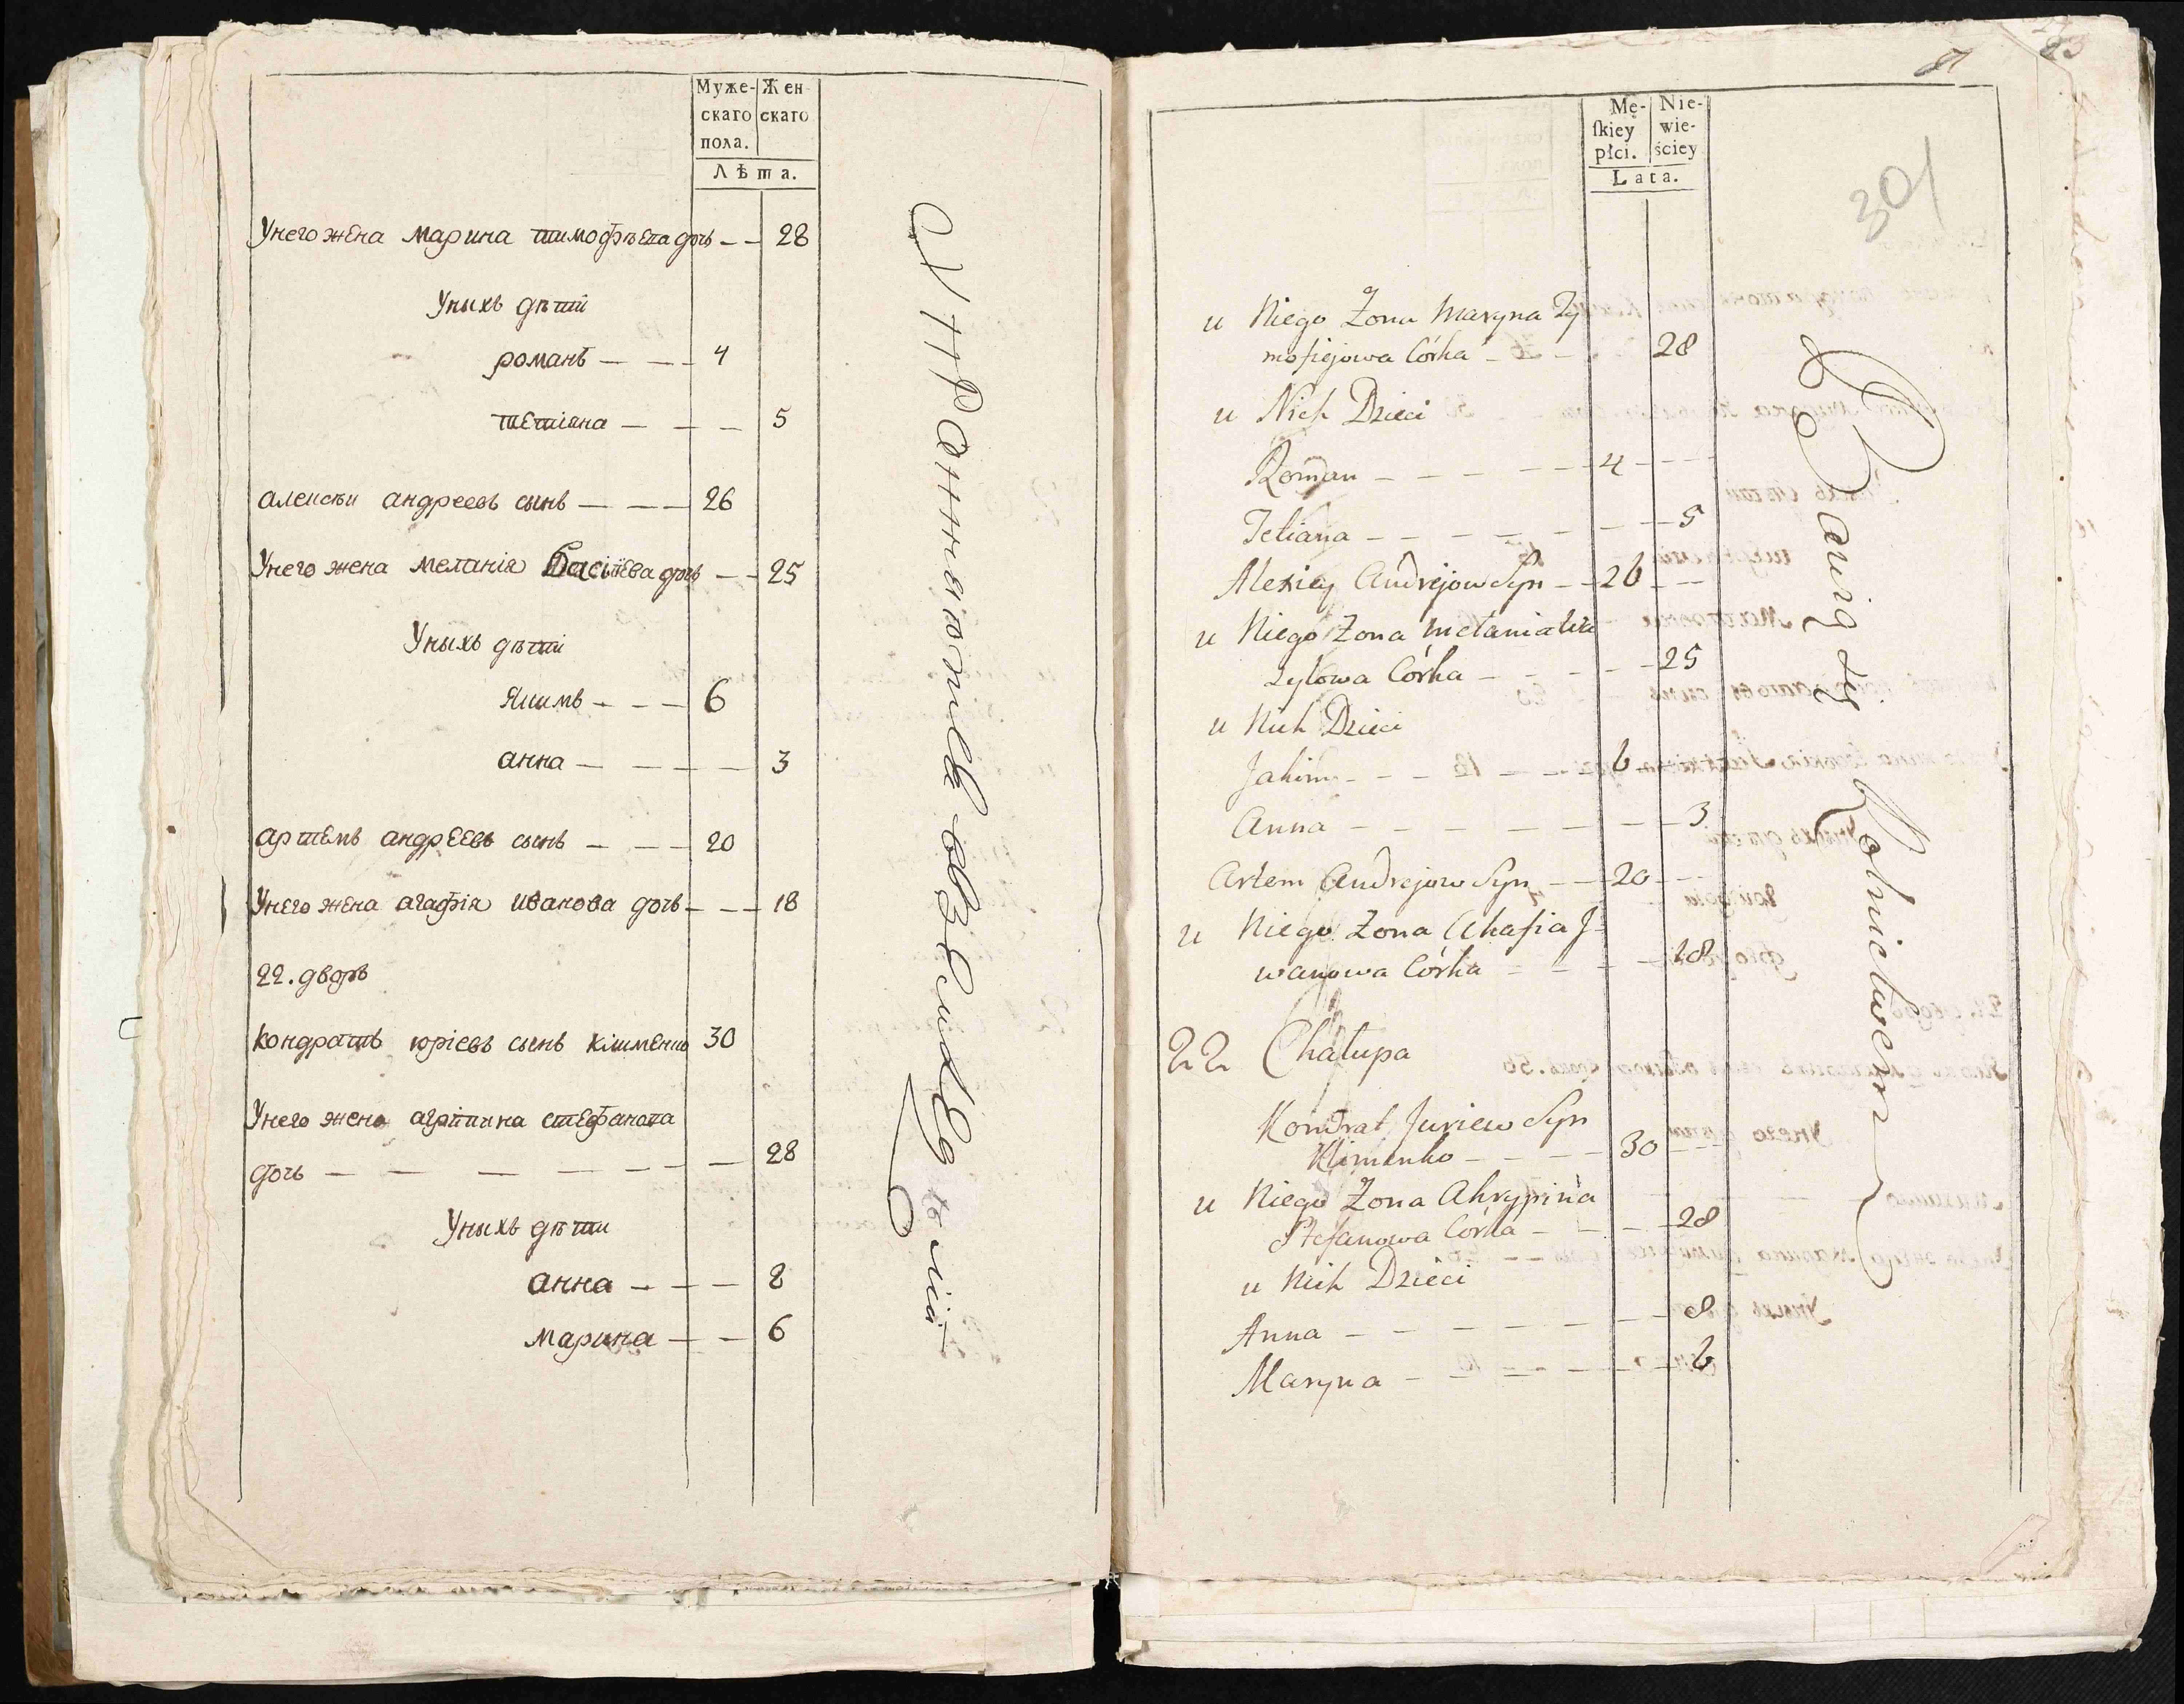 Муже- Жен
скаго скаго
пола.
Лѣта.
Унего жена марина тимофѣева дочь - - 28
Уныхъ дѣтй
романъ - - - 4
тетіяна - - - 5
алексѣи андреевъ сынъ - - - 26
Унего жена меланія Васілева дочь - - 25
Уныхъ дѣтй
Якимъ - - - 6
анна - - - - 3
артемъ андреевъ сынъ - - - 20
Унего жена агафія иванова дочь - - - 18
22. дворъ
кондратъ юріевъ сынъ кліменко 30
Унего жена агріпина стефанова
дочь - - - - - - - 28
Уныхъ дѣти
анна - - - 8
марина - - 6
8
83
301
Mę- Nie-
ſkiey wie-
płci. ściey
Lata.
u Niego Zona Maryna Ty
mofiejowa Córka - - - 28
u Nich Dzieci
Roman - - - - - 4 - - -
Tetiana - - - - - - - 5
Alexiey Andrejow Syn - - 26 - -
u Niego Zona Melania Wa
zylowa Córka - - - - 25
u Nich Dzieci
Jakim - - - - - - 6
Anna - - - - - - - 3
Artem Andrejow Syn - - 20 - -
u Niego Zona Ahafia J-
wanowa Córka - - - - 18
22 Chałupa
Kondrat Juriew Syn
Klimenko - - - - 30 - -
u Niego Zona Ahrypina
Stefanowa Córka - - - - 28
u Nich Dzieci
Anna - - - - - - - 8
Maryna - - - - - - 6
Bawiący
Rolnictwem